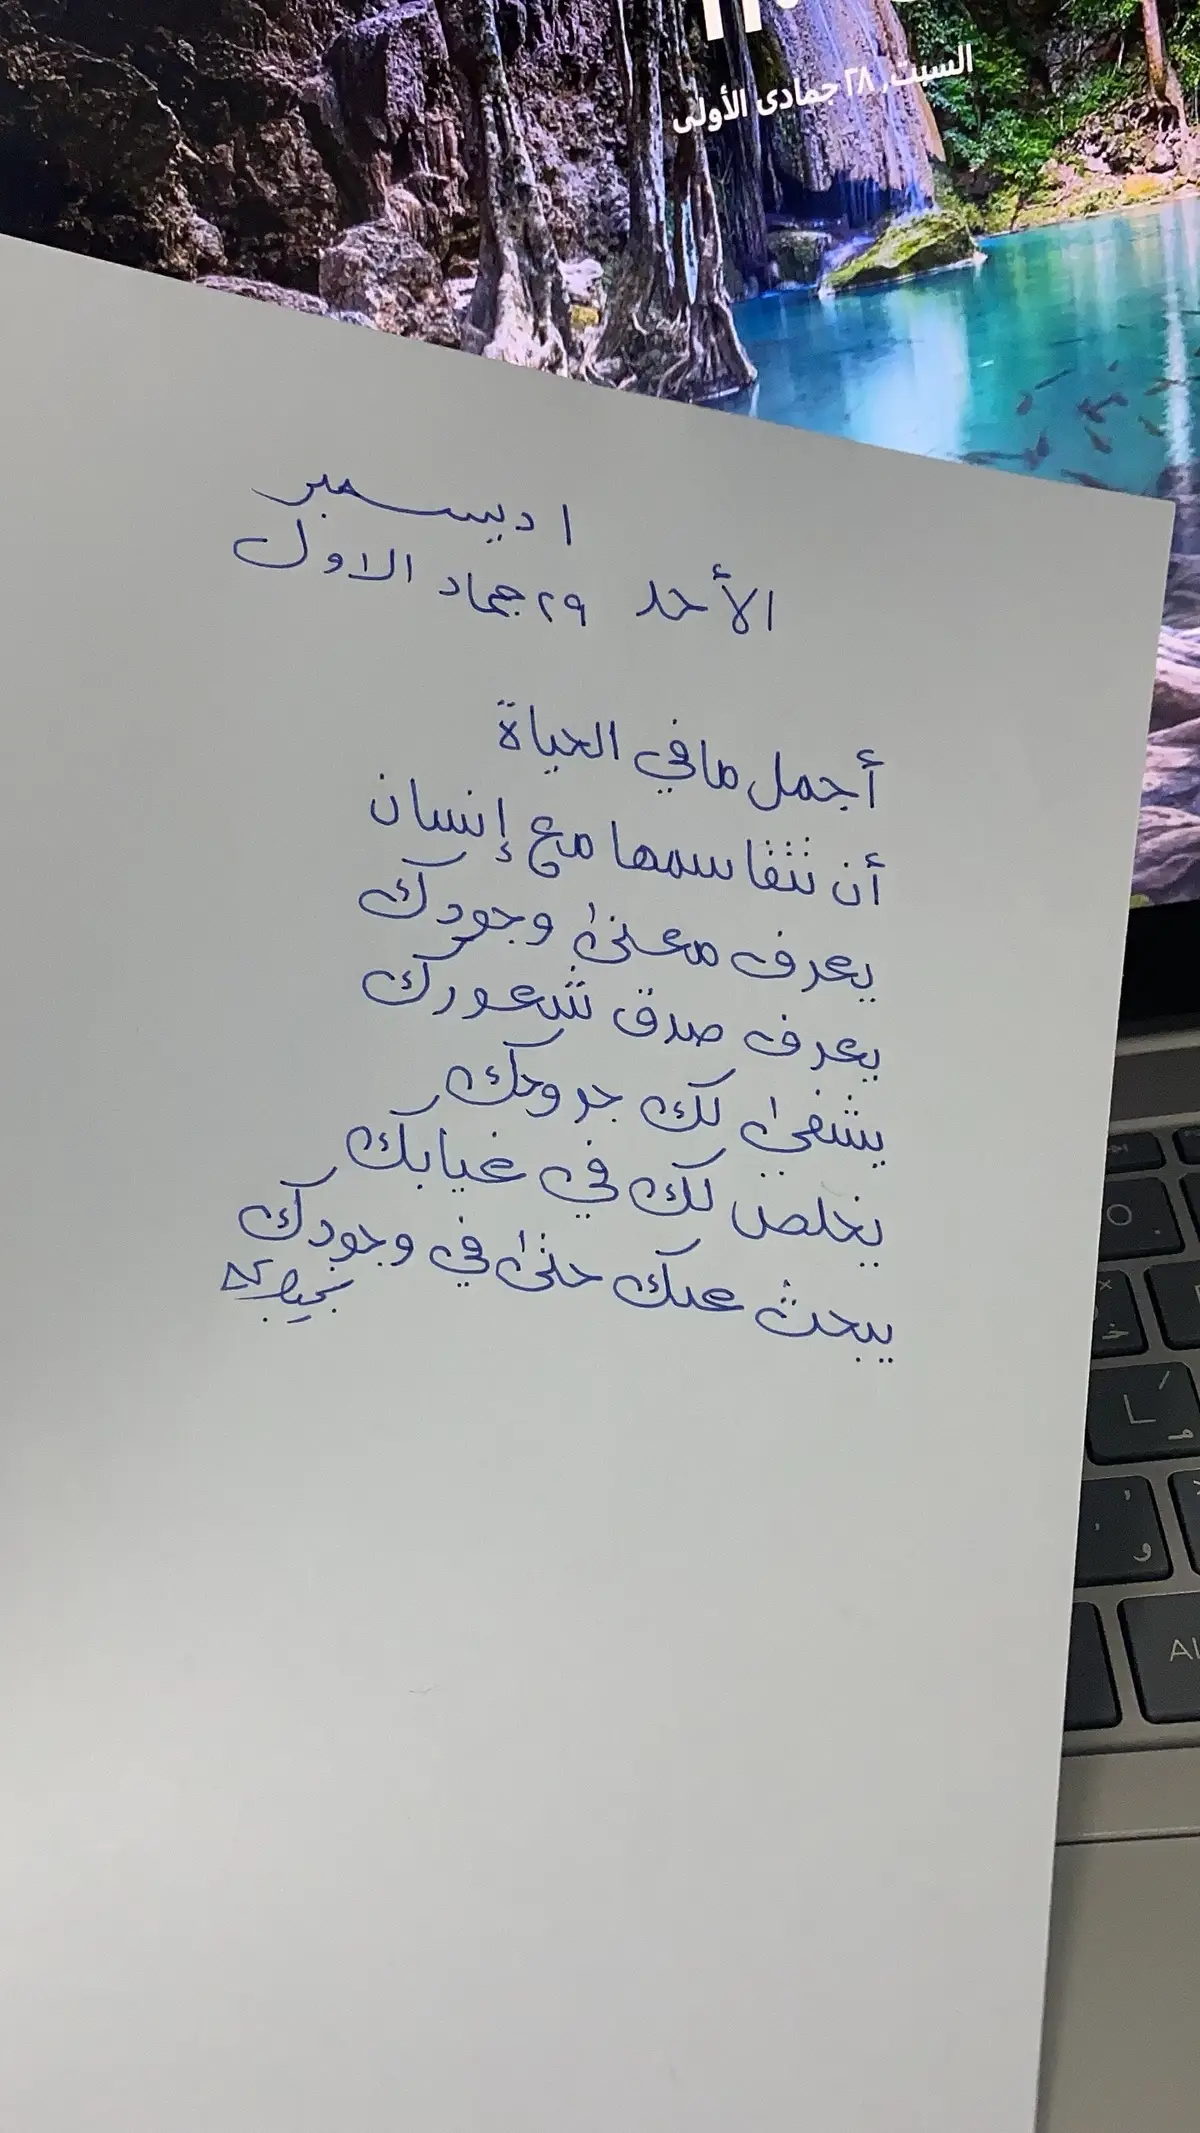 السبت، ٢٨ جمادى الأولى
١ ديسمبر
الأحد ٢٩ جماد الاول
أجمل مافي الحياة
أن نتقاسمها مع إنسان
يعرف معنىٰ وجودك
يعرف صدق شعورك
يشفيٰ لك جروحك
يخلص لك في غيابك
يبحث عنك حتىٰ في وجودك
Alt